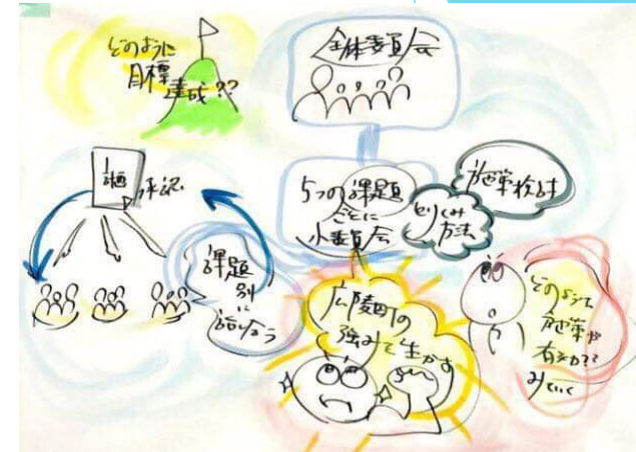 どのように
目標
達成??
全体委員会
計画
承認
5つの課題
ごとに
小委員会
施策検討
とりくみ
方法
課題
別に
話し合う
広陵町の
強みを生かす
どのような
施策が
有効か??
みていく